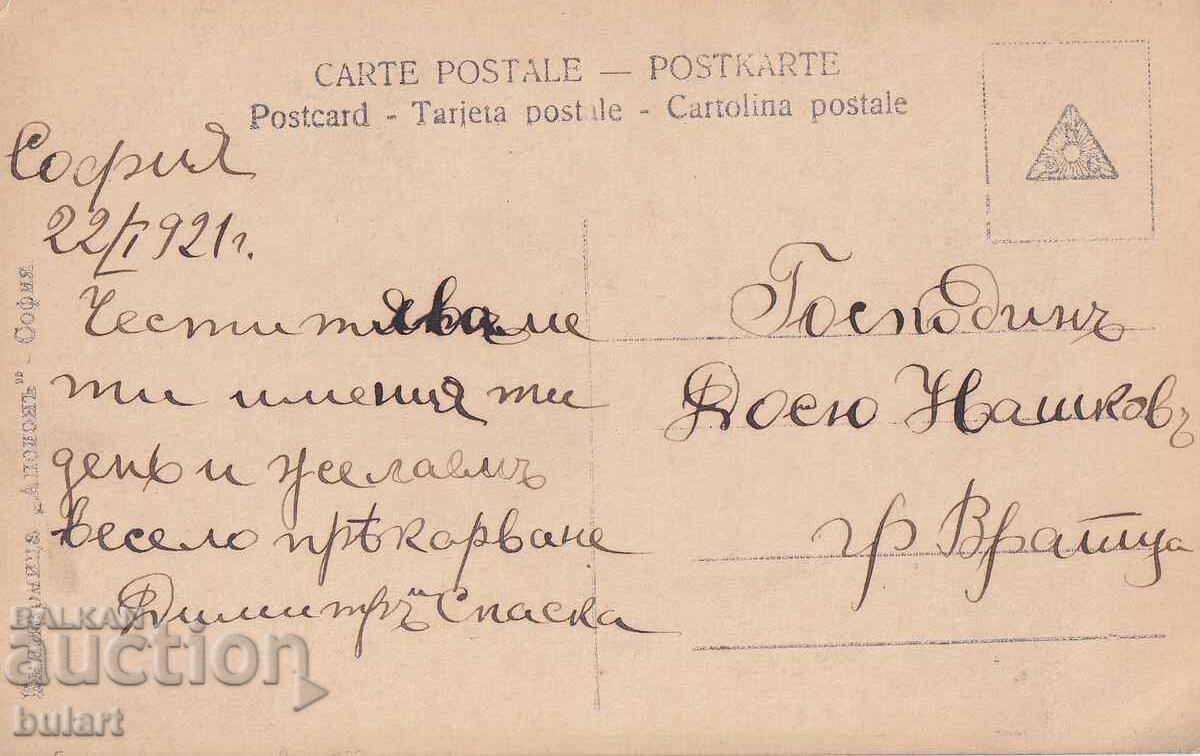 CARTE POSTALE — POSTKARTE
Postcard - Tarjeta postale - Cartolina postale
София
22/I 921 г.
Честитяваме
ти имения ти
день и желаемъ
весело прѣкарване
Димитръ и Спаска
Господинъ
Досю Нашковъ
гр Вратца
"ДАНОВЪ" - София
BALKAN
auction
bulart